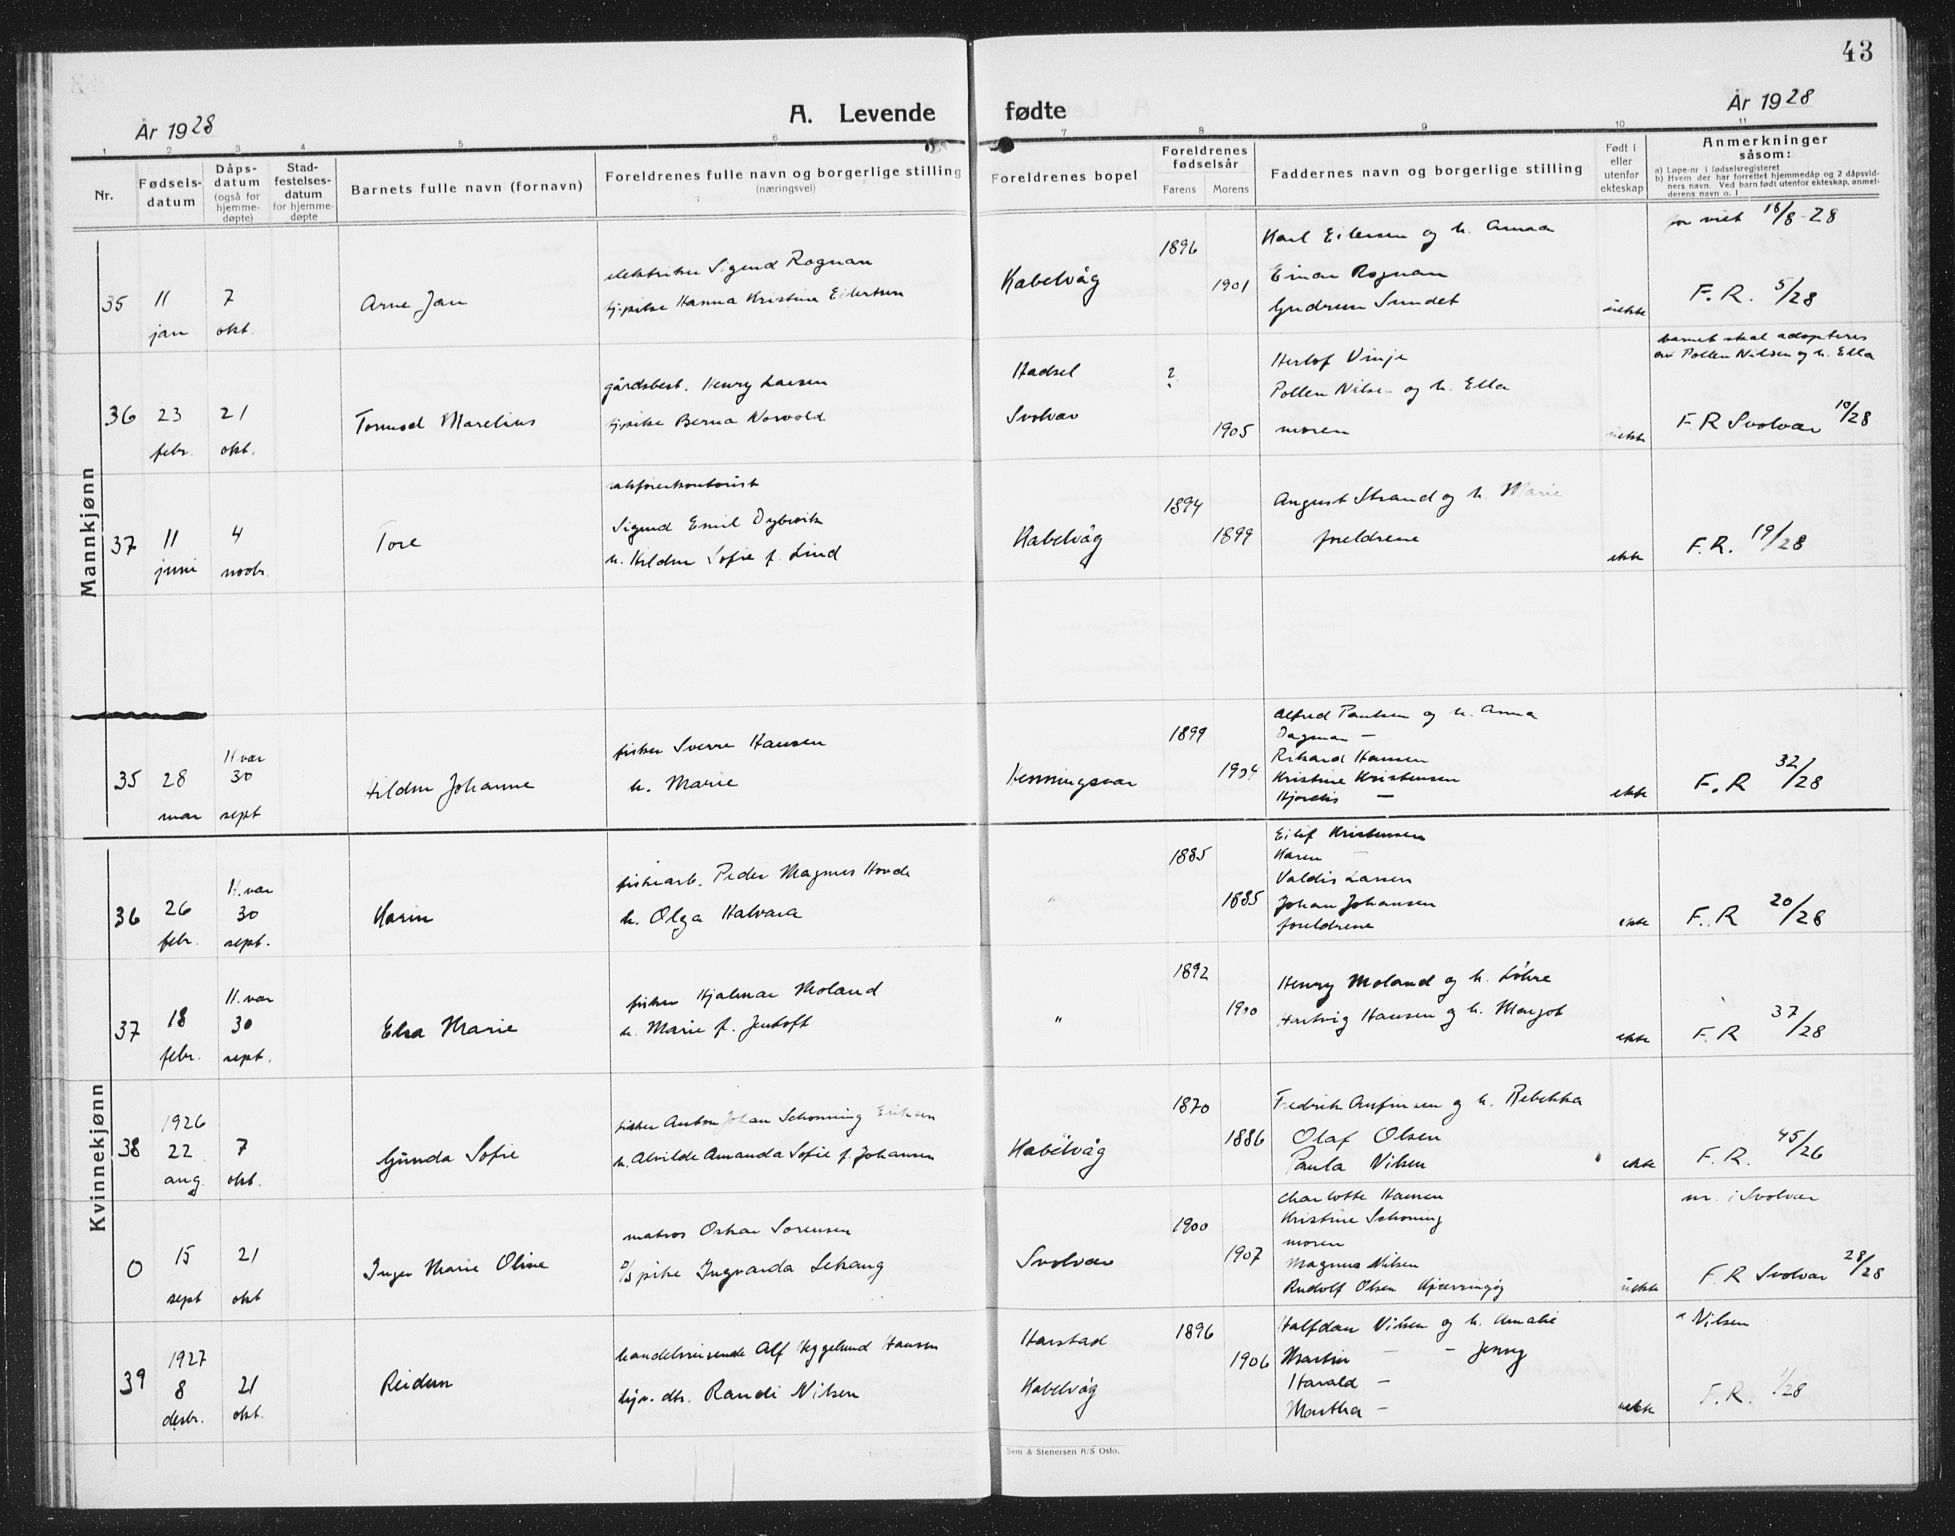 43
År 1928
A. Levende fødte
År 1928
1 2 3 4 5 6 7 8 9 10 11
Nr.
Fødsels-
datum
Dåps-
datum
(også for
hjemme-
døpte)
Stad-
festelses-
datum
for hjemme-
døpte
Barnets fulle navn (fornavn)
Foreldrenes fulle navn og borgerlige stilling
(næringsvei)
Foreldrenes bopel
Foreldrenes
fødselsår
Farens Morens
Faddernes navn og borgerlige stilling
Født i
eller
utenfor
ekteskap
Anmerkninger
såsom:
a) Løpe-nr i fødselsregisteret
b) Hvem der har forrettet hjemmedåp og 2 dåpsvid-
ners navn. Ved barn født utenfor ekteskap, anmel-
derens navn o. l
Mannkjønn
35
11
jan
7
okt.
Arne Jan
elektriker Sigurd Rognan
Hanna Kristine Eilertsen
Kabelvåg
1896
1901
Karl Eilersen og h. Anna
Einar Rognan
Gudrun Sundet
uekte
viet 18/8-28
F. R. 5/28
36
23
febr.
21
okt.
Tormod Marelius
gårdsbest. Henry Larsen
Berna Norvold
Hadsel
Svolvær
?
1905
Herlof Vinje
Pollen Nilsen og h. Ella
moren
uekte
barnet skal adopteres
av Pollen Nilsen og h. Ella
F. R Svolvær 10/28
37
11
juni
4
novbr.
Tore
Sigurd Emil Dybvik
h. Hildur Sofie f. Lind
Kabelvåg
1894
1899
August Strand og h. Marie
foreldrene
ekte
F. R. 19/28
35
28
mar
H.vær
30
sept
Hildur Johanne
fisker Sverre Hansen
h. Marie
Henningsvær
1899
1904
Alfred Paulsen og h. Anna
Dagmar —
Rikard Hansen
Kristine Kristensen
Hjørdis —
ekte
F. R 32/28
Kvinnekjønn
36
26
febr.
H.vær
30
sept.
Karin
fiskearb. Peder Magnus Hovde
h. Olga Halvara
"
1885
1885
Eilif Kristensen
Karen —
Valdis Larsen
Johan Johansen
foreldrene
ekte
F. R 20/28
37
18
febr.
H.vær
30
sept.
Elsa Marie
fisker Hjalmar Moland
h. Marie f. Jentoft
"
1892
1900
Henry Moland og h. Løkre
Hartvig Hansen og h. Margot
ekte
F. R 37/28
38
1926
22
aug.
7
okt.
Gunda Sofie
fisker Anton Johan Schønning Eriksen
h. Alvilde Amanda Sofie f. Johansen
Kabelvåg
1870
1886
Fredrik Anfinsen og h. Rebekka
Olaf Olsen
Paula Nilsen
ekte
F. R. 45/26
0
15
sept
21
okt
Inger Marie Oline
matros Oskar Sørensen
pike Ingvarda Lekang
Svolvær
1900
1907
Charlotte Hansen
Kristine Schøning
moren
Magnus Nilsen
Rudolf Olsen Kjerringøy
uekte
nr. i Svolvær
F. R Svolvær 28/28
39
1927
8
desbr.
21
okt.
Reidun
handelsreisende Alf Heggelund Hansen
hjv. dtr. Randi Nilsen
Harstad
Kabelvåg
1896
1906
Halfdan Nilsen og h. Amalie
Martin — — Jenny
Harald —
Martha —
uekte
Nilsen
F. R. 1/28
Sem & Stenersen A/S Oslo.